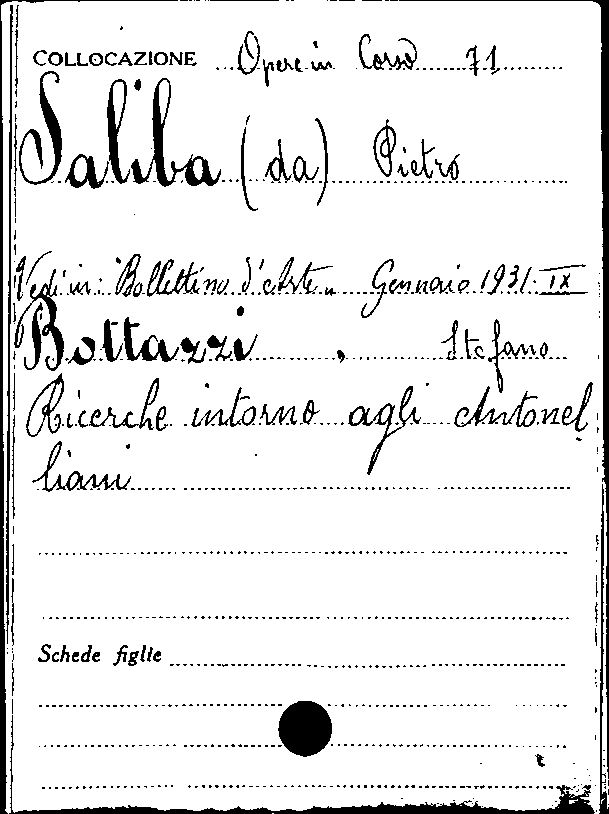 COLLOCAZIONE Opere in Corso 71
Saliba (da) Pietro
Vedi in: "Bollettino d'Arte" Gennaio 1931-IX
Bottazzi, Stefano
Ricerche intorno agli Antonel
liani
Schede figlie